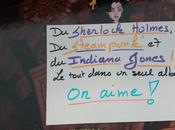 Du Sherlock Holmes,
Du Steampunk et
du Indiana Jones !
Le tout dans un seul album
On aime !